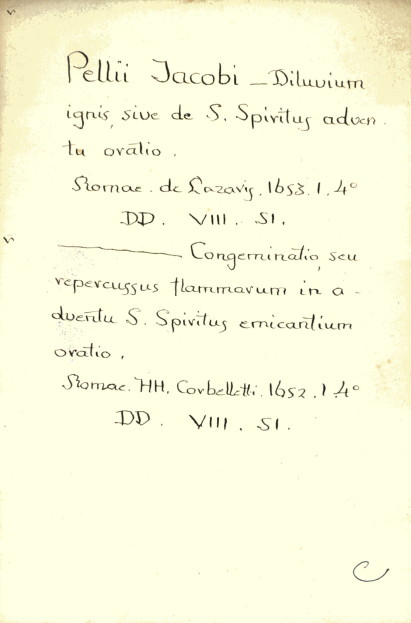 Pellii Jacobi — Diluvium
ignis, sive de S. Spiritus adven-
tu oratio.
Romae. de Lazaris. 1653. 1. 4°
DD. VIII. 51.
——— Congeminatio, seu
repercussus flammarum in a-
dventu S. Spiritus emicantium
oratio.
Romae. HH. Corbelletti. 1652. 1. 4°
DD. VIII. 51.
C